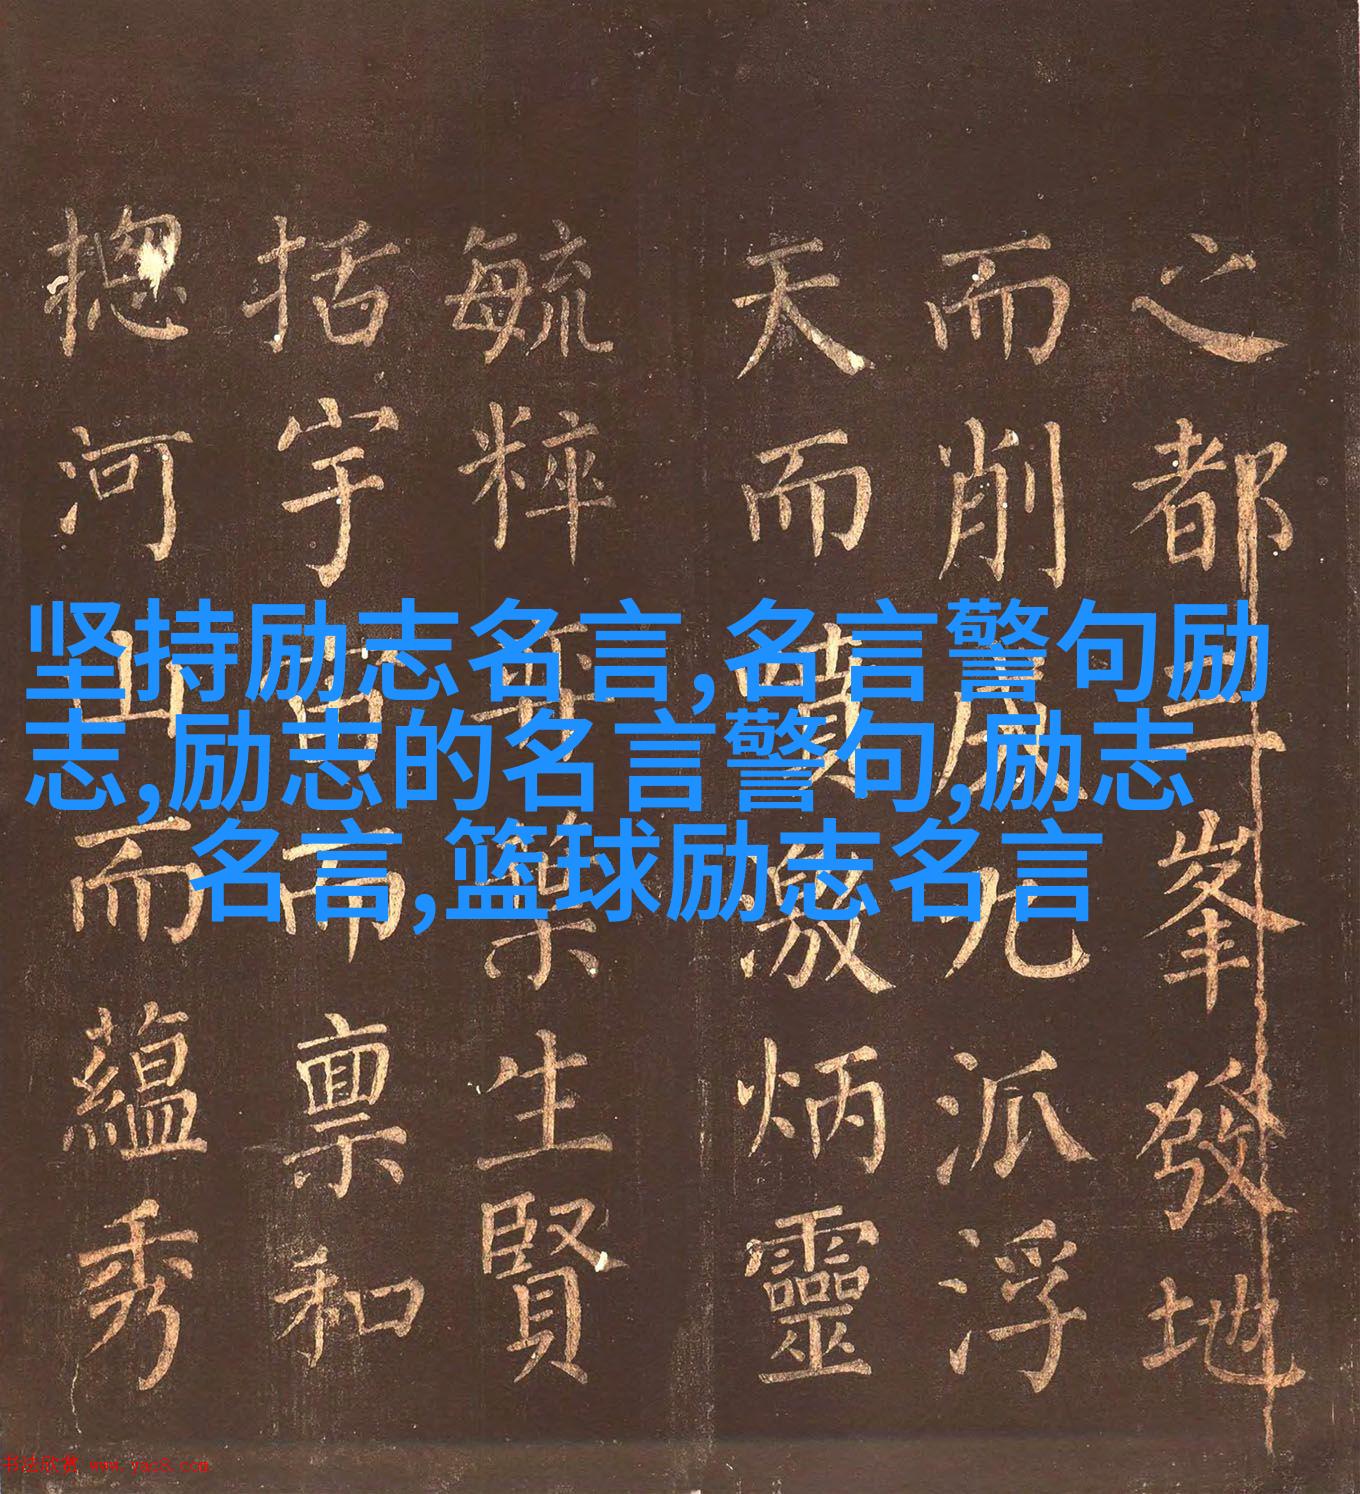 之都三峯發地
而削成九派浮
天而噴激炳靈
毓粹生賢
括宇宙而禀和
揔河山而蘊秀
坚持励志名言,名言警句励
志,励志的名言警句,励志
名言,篮球励志名言
书法欣赏 www.yac8.com